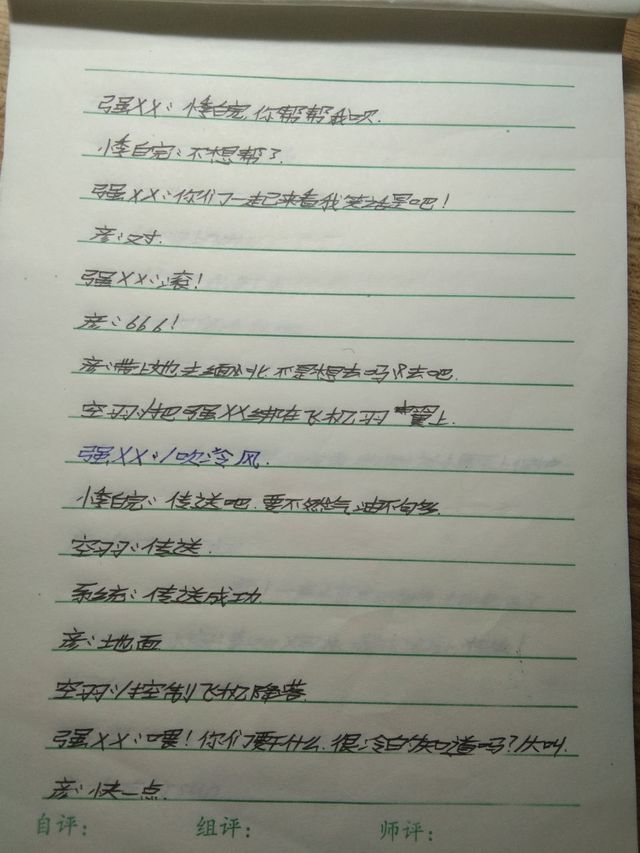 强XX：悸皖，你帮帮我呗.
悸皖：不想帮了.
强XX：你们一起来看我笑话是吧！
彦：对.
强XX：滚！
彦：666！
彦：带上她去缅北，不是想去吗？去吧.
空羽：/把强XX绑在飞机羽翼上.
强XX：/吹冷风.
悸皖：传送吧.要不然汽油不够.
空羽：传送.
系统：传送成功
彦：地面
空羽：/控制飞机降落
强XX：喂！你们要干什么.很冷的知道吗？/大叫.
彦：快一点.
自评： 组评： 师评：